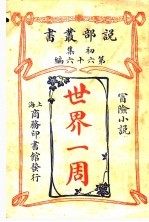 説部叢書
初集
第六十六編
冒險小説
世界一周
上海商務印書館發行